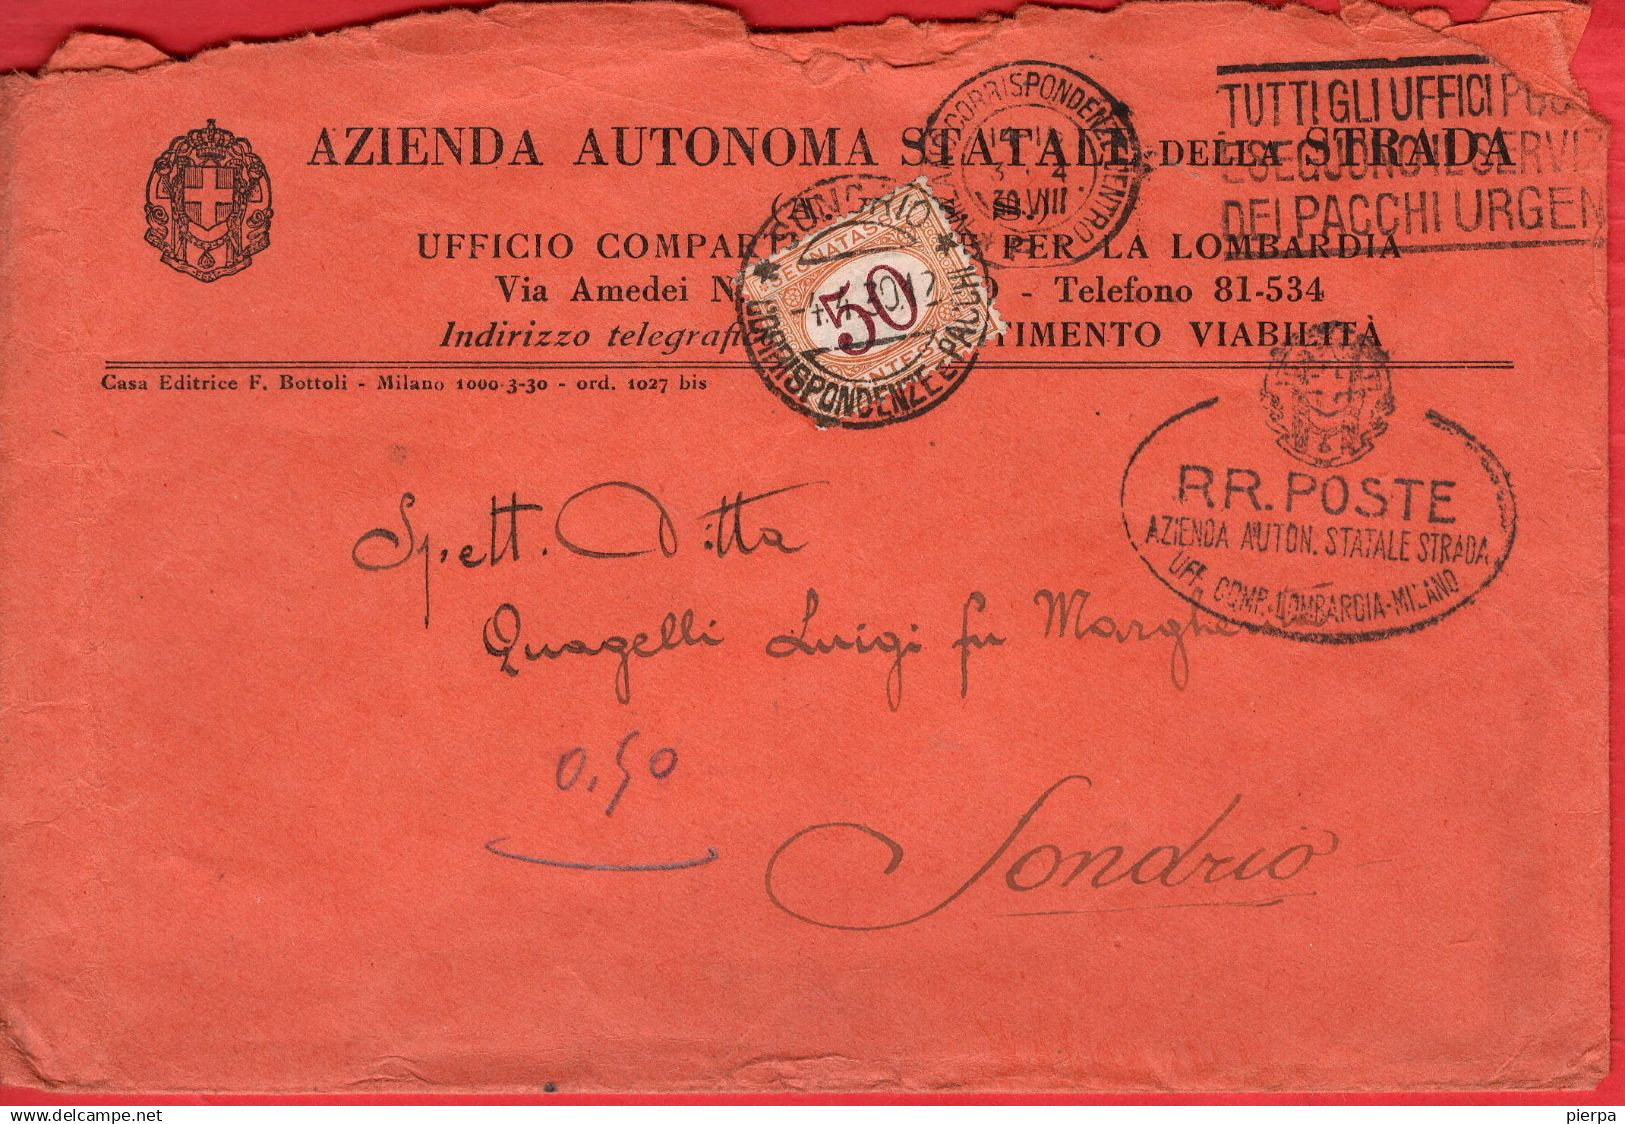 AZIENDA AUTONOMA STATALE DELLA STRADA
UFFICIO COMPART PER LA LOMBARDIA
Via Amedei N - Telefono 81-534
Indirizzo telegrafi TIMENTO VIABILITÀ
Casa Editrice F. Bottoli - Milano 1000-3-30 - ord. 1027 bis
CORRISPONDENZE CENTRO
3 . 4
30 VIII
TUTTI GLI UFFICI
ESEGUONO IL SERVIZ
DEI PACCHI URGEN
SEGNATASSE
50
-4.4.30.12
CORRISPONDENZE E PACCHI
R.R. POSTE
AZIENDA AUTON. STATALE STRADA
UFF. COMP. LOMBARDIA-MILANO
Spett. Ditta
Quagelli Luigi fu
0,50
Sondrio
pierpa